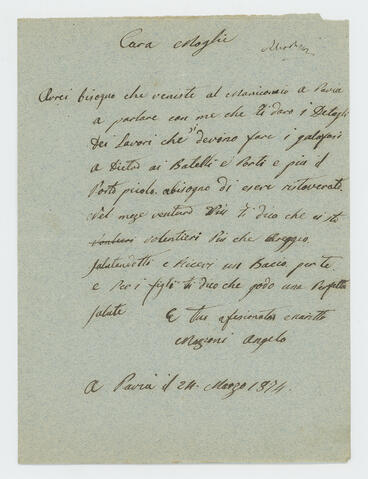 Cara Moglie
Avrei bisogno che veniste al Manicomio a Pavia
a parlare con me che ti daro i Detagli
dei Lavori che si devono fare i galafasi
a Dietro ai Batelli e Porti e più il
Porto picolo abisogno di esere
Nel mese venturo Più ti dico che ci sto
volentieri Più che
Salutandotti e Ricevi un Bacco per te
e Per i figli ti dico che godo una Perfetta
salute E tuo afesionato Maritto
Angelo
a Pavia il 24 Marzo 1874.